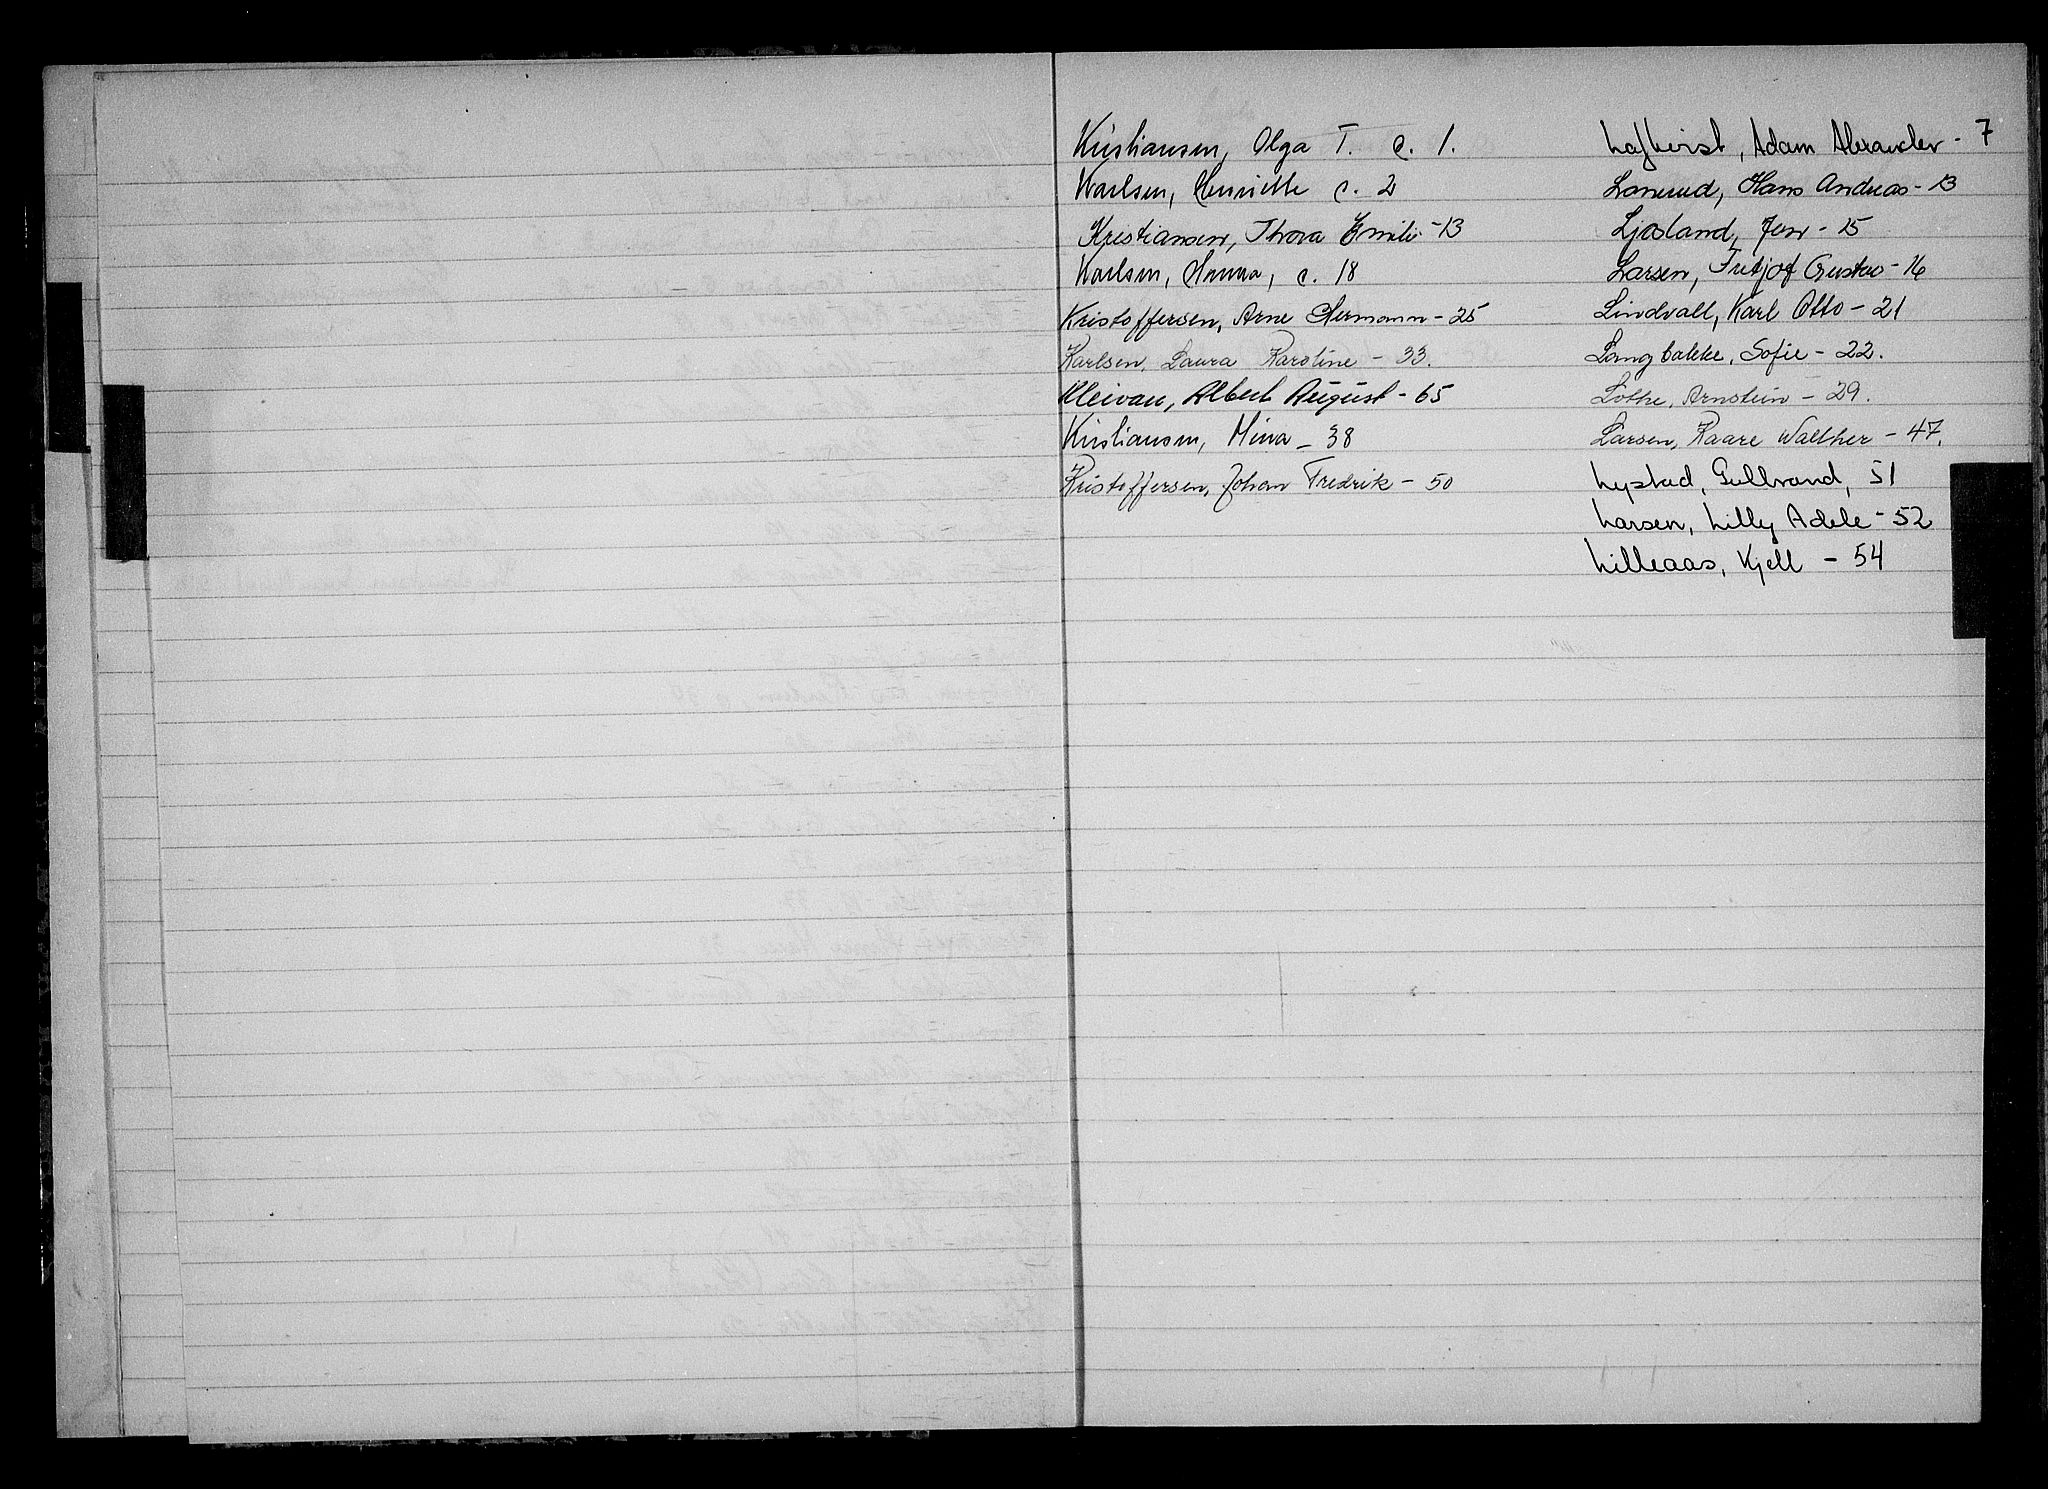 Kristiansen, Olga T. c. 1.
Karlsen, Henriette c. 2
Kristiansen, Thora Emilie - 13
Karlsen, Hanna, c. 18
Kristoffersen, Arne Hermann - 25
Karlsen, Laura Karoline - 33.
Kleivan, Albert August - 65
Kristiansen, Mina - 38
Kristoffersen, Johan Fredrik - 50
Adam Alexander - 7
Lonerud, Hans Andreas - 13
Ljosland, Jon - 15
Larsen, Fritjof Gustav - 16
Lindvall, Karl Otto - 21
Langbakke, Sofie - 22.
Lothe, Arnstein - 29.
Larsen, Kaare Walther - 47.
Lystad, Gulbrand, 51
Larsen, Lilly Adele - 52
Lilleaas, Kjell - 54